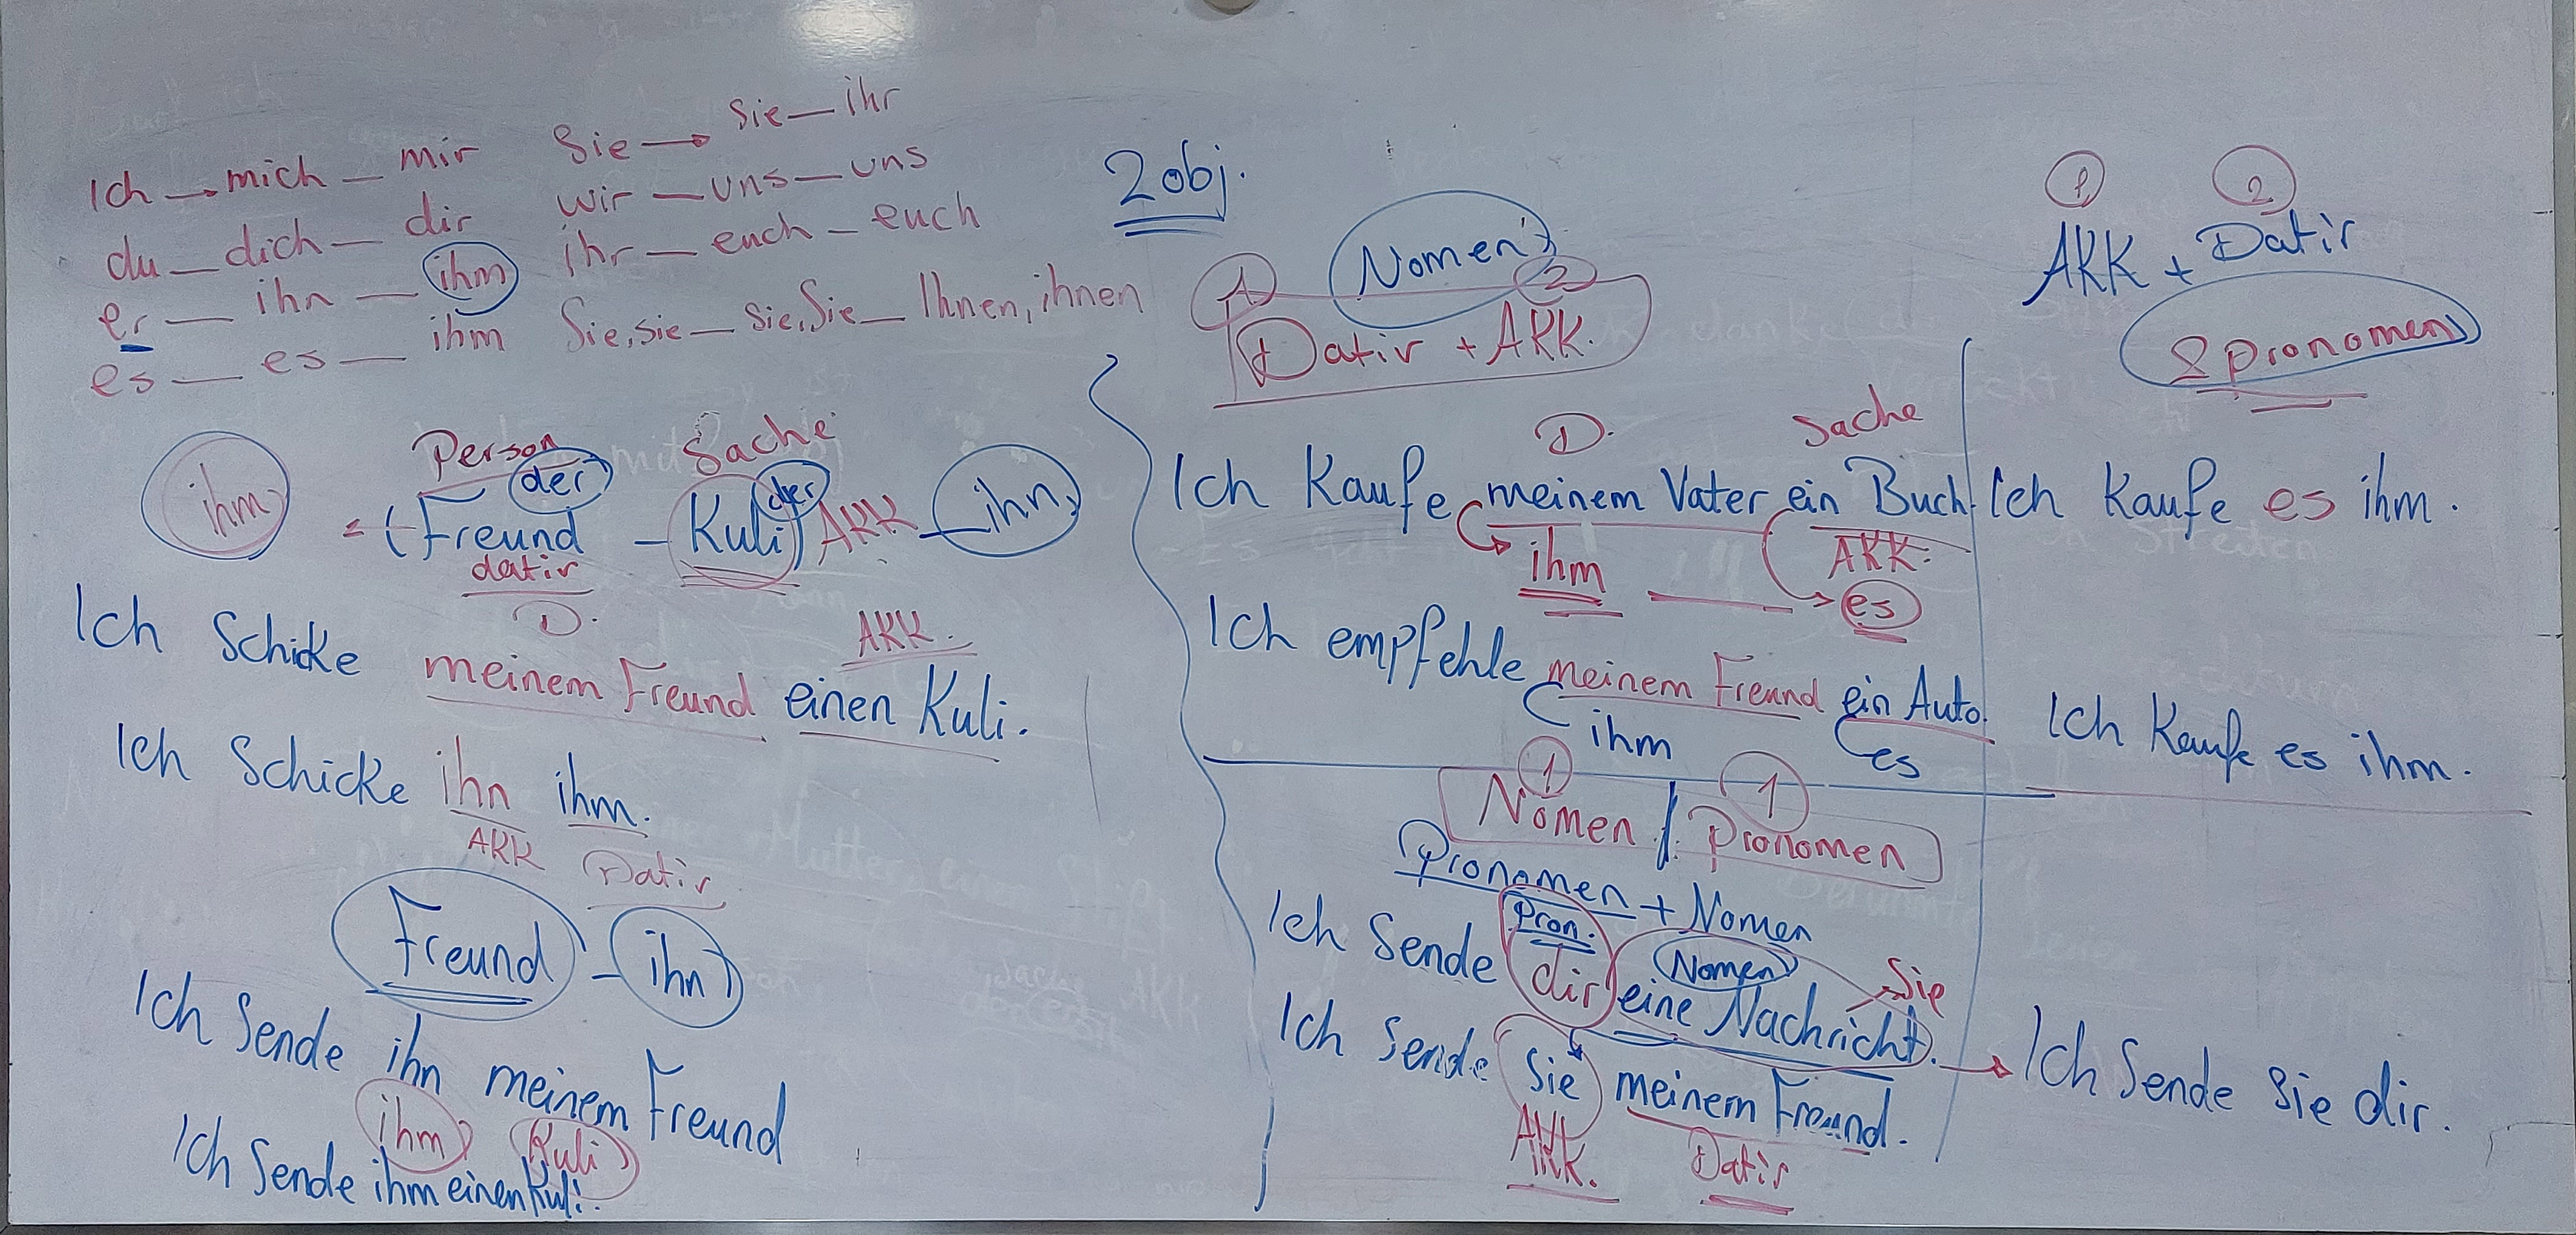 Ich → mich — mir
du — dich — dir
er — ihn — ihm
es — es — ihm
Sie → Sie — ihr
wir — uns — uns
ihr — euch — euch
Sie, sie — sie, Sie — Ihnen, ihnen
ihm = (Freund der — Kuli der) AKK — ihn
Person Sache
dativ
D. AKK.
Ich Schicke meinem Freund einen Kuli.
Ich Schicke ihn ihm.
AKK Dativ
Freund — ihn
Ich Sende ihn meinem Freund
ihm Kuli
Ich Sende ihm einen Kuli.
2 obj.
Nomen
1 2
Dativ + AKK.
D. Sache
Ich Kaufe meinem Vater ein Buch
ihm AKK. es
Ich empfehle meinem Freund ein Auto.
ihm es
1 1
Nomen / Pronomen
Pronomen + Nomen
Pron. Nomen
Ich Sende dir eine Nachricht. → Sie
Ich Sende Sie meinem Freund.
AKK. Dativ
1 2
AKK + Dativ
2 pronomen
Ich Kaufe es ihm.
Ich Kaufe es ihm.
→ Ich Sende Sie dir.